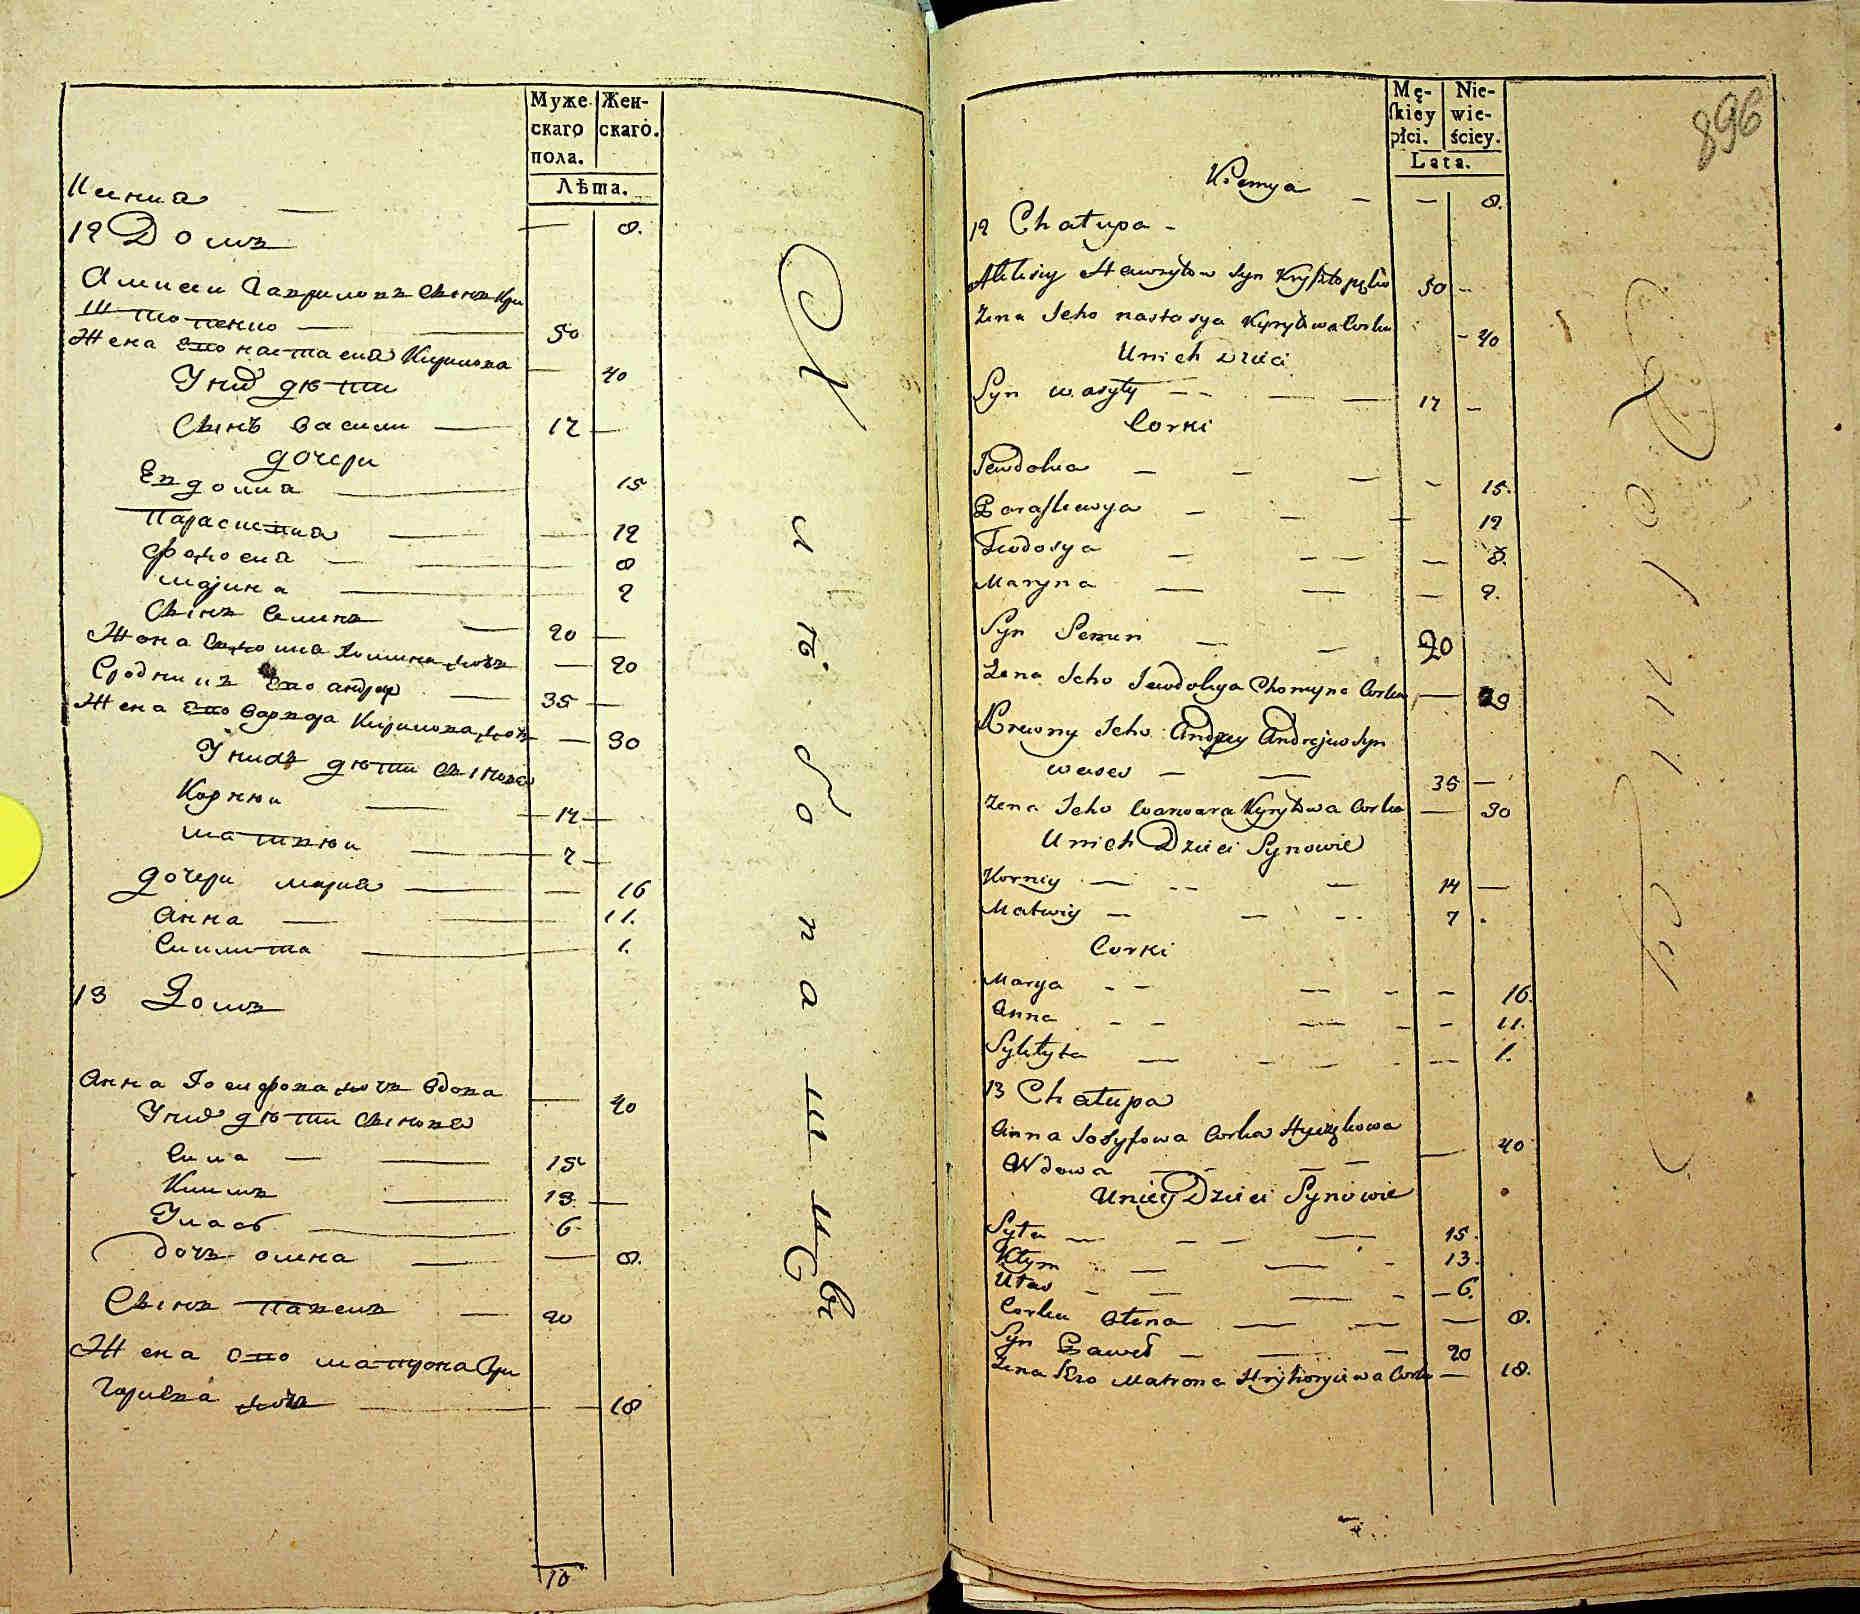 Муже скаго пола. Жен- скаго.
Лѣта.
Ксения — — 8.
12 Домъ
Алексеи Гавриловъ Сынъ Кри
штопенко — 50
Жена Его настасия Кирилова — 40
У них дети
Сынъ Васили — 17 —
дочери
Евдокиа — 15
Параскевиа — 12
Феодосиа — 8
Марина — 2
Сынъ Семенъ — 20 —
Жена Евдокиа Хомина дочь — 20
Сродникъ Его андрей — 35 —
Жена Его Варвара Кирилова дочь — 30
У нихъ дети Сыновя
Корнеи — 14 —
Матвеи — 7 —
дочери Мариа — 16
Анна — 11.
Сиклита — 1.
13 Домъ
Анна Иосифова дочь вдова — 40
У ней дети Сыновя
Сила — 15
Климъ — 13 —
Улас — 6
дочь олена — 8.
Сынъ Павелъ — 20
Жена Его матрона Гри
гориева дочь — 18
10
Хлѣбопашцы
896
Mę- skiey płci. Nie- wie- ściey.
Lata.
Xiemya — — 8.
12 Chałupa -
Alexiy Hawryłow Syn Krysztopęko 50 -
Zena Jeho nastasya Kyryłowa Corka - 40
Unich Dzieci
Syn wasyly — 17 -
Corki
Jewdokia — 15.
Paraskewya — 12
Fiodosya — 8.
Maryna — 2.
Syn Semen — 20
Zena Jeho Jewdokya Chomyna Corka — 20
Krewny Jeho Andrzey Andrejuw Syn
— 35 —
Zena Jeho Warwara Kyryłowa Corka — 30
Unich Dzieci Synowie
Korniy — 14 —
Matwiy — 7 .
Corki
Marya — 16.
Anna — 11.
Sykłyta — 1.
13 Chałupa
Anna Josyfowa Corka
Wdowa — 40
Uniey Dzieci Synowie
Syła — 15.
Kłym — 13.
Ułas — 6.
Corka Ołena — 8.
Syn Paweł — 20
Zena Jeho Matrona Hryhoryiewa Corka — 18.
Rolnicy